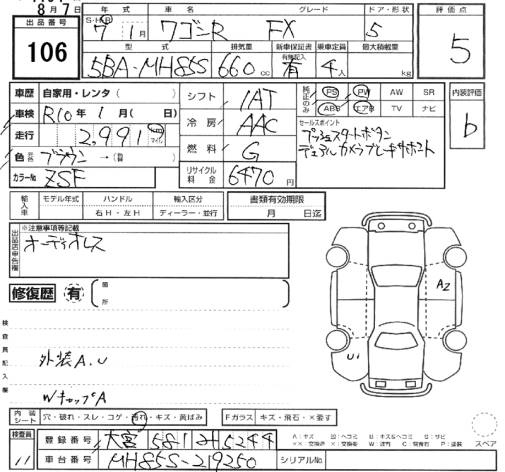 8月7日
年式 車名 グレード ドア・形状 評価点
出品番号 106
S・H・R 7年 1月 ワゴンR FX 5
5
型式 排気量 新車保証書 乗車定員 最大積載量
有無記入
5BA-MH85S 660 cc 有 4人 kg
車歴 自家用・レンタ( )
車検 R10年 1月( 日)
走行 2,991 マイル
色 元色 ブラウン →(替 )
カラーNo ZSF
シフト IAT
冷房 AAC
燃料 G
リサイクル料金 6470円
純正のみ PS PW AW SR
ABS エアB TV ナビ
セールスポイント
プッシュスタートボタン
デュアルカメラブレーキサポート
内装評価
b
輸入車 モデル年式 ハンドル 輸入区分 書類有効期限
右H・左H ディーラー・並行 月 日迄
出品店申告欄 ※注意事項等記載
オーディオレス
修復歴 有 箇所
検査員記入欄
外装A.U
WキップA
A2
U1
内装シート 穴・破れ・スレ・コゲ・汚れ・キズ・黄ばみ Fガラス キズ・飛石・×要す
スペア
検査員 11
登録番号 大宮 581 れ 5244
車台番号 MH85S-219250 シリアルNo